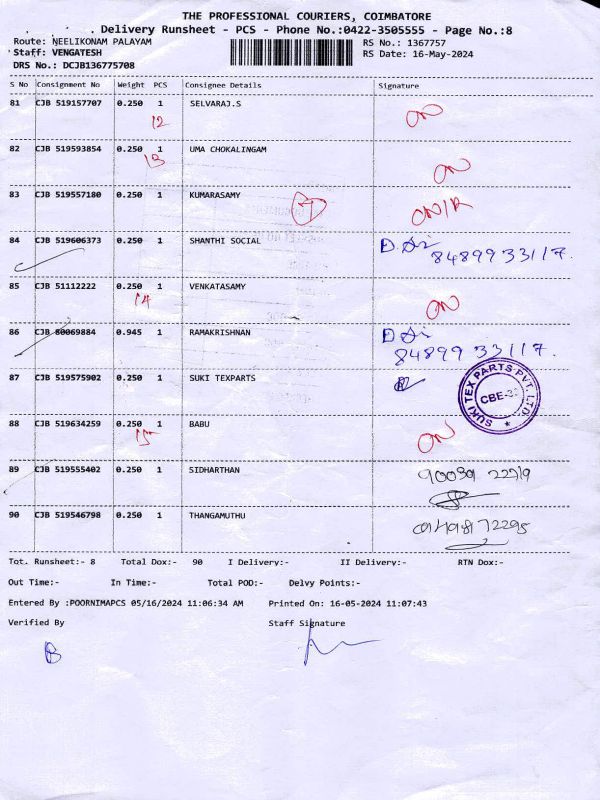 THE PROFESSIONAL COURIERS, COIMBATORE
Delivery Runsheet - PCS - Phone No.:0422-3505555 - Page No.:8
Route: NEELIKONAM PALAYAM RS No.: 1367757
Staff: VENGATESH RS Date: 16-May-2024
DRS No.: DCJB136775708
S No Consignment No Weight PCS Consignee Details Signature
81 CJB 519157707 0.250 1 SELVARAJ.S
12 ON
82 CJB 519593854 0.250 1 UMA CHOKALINGAM
13 ON
83 CJB 519557180 0.250 1 KUMARASAMY
7 ON/R
84 CJB 519606373 0.250 1 SHANTHI SOCIAL
8489933117.
85 CJB 51112222 0.250 1 VENKATASAMY
14 ON
86 CJB 80069884 0.945 1 RAMAKRISHNAN
8489933117.
87 CJB 519575902 0.250 1 SUKI TEXPARTS
SUKI TEX PARTS PVT. LTD.
88 CJB 519634259 0.250 1 BABU
15 ON
89 CJB 519555402 0.250 1 SIDHARTHAN
90 CJB 519546798 0.250 1 THANGAMUTHU
Tot. Runsheet:- 8 Total Dox:- 90 I Delivery:- II Delivery:- RTN Dox:-
Out Time:- In Time:- Total POD:- Delvy Points:-
Entered By :POORNIMAPCS 05/16/2024 11:06:34 AM Printed On: 16-05-2024 11:07:43
Verified By Staff Signature